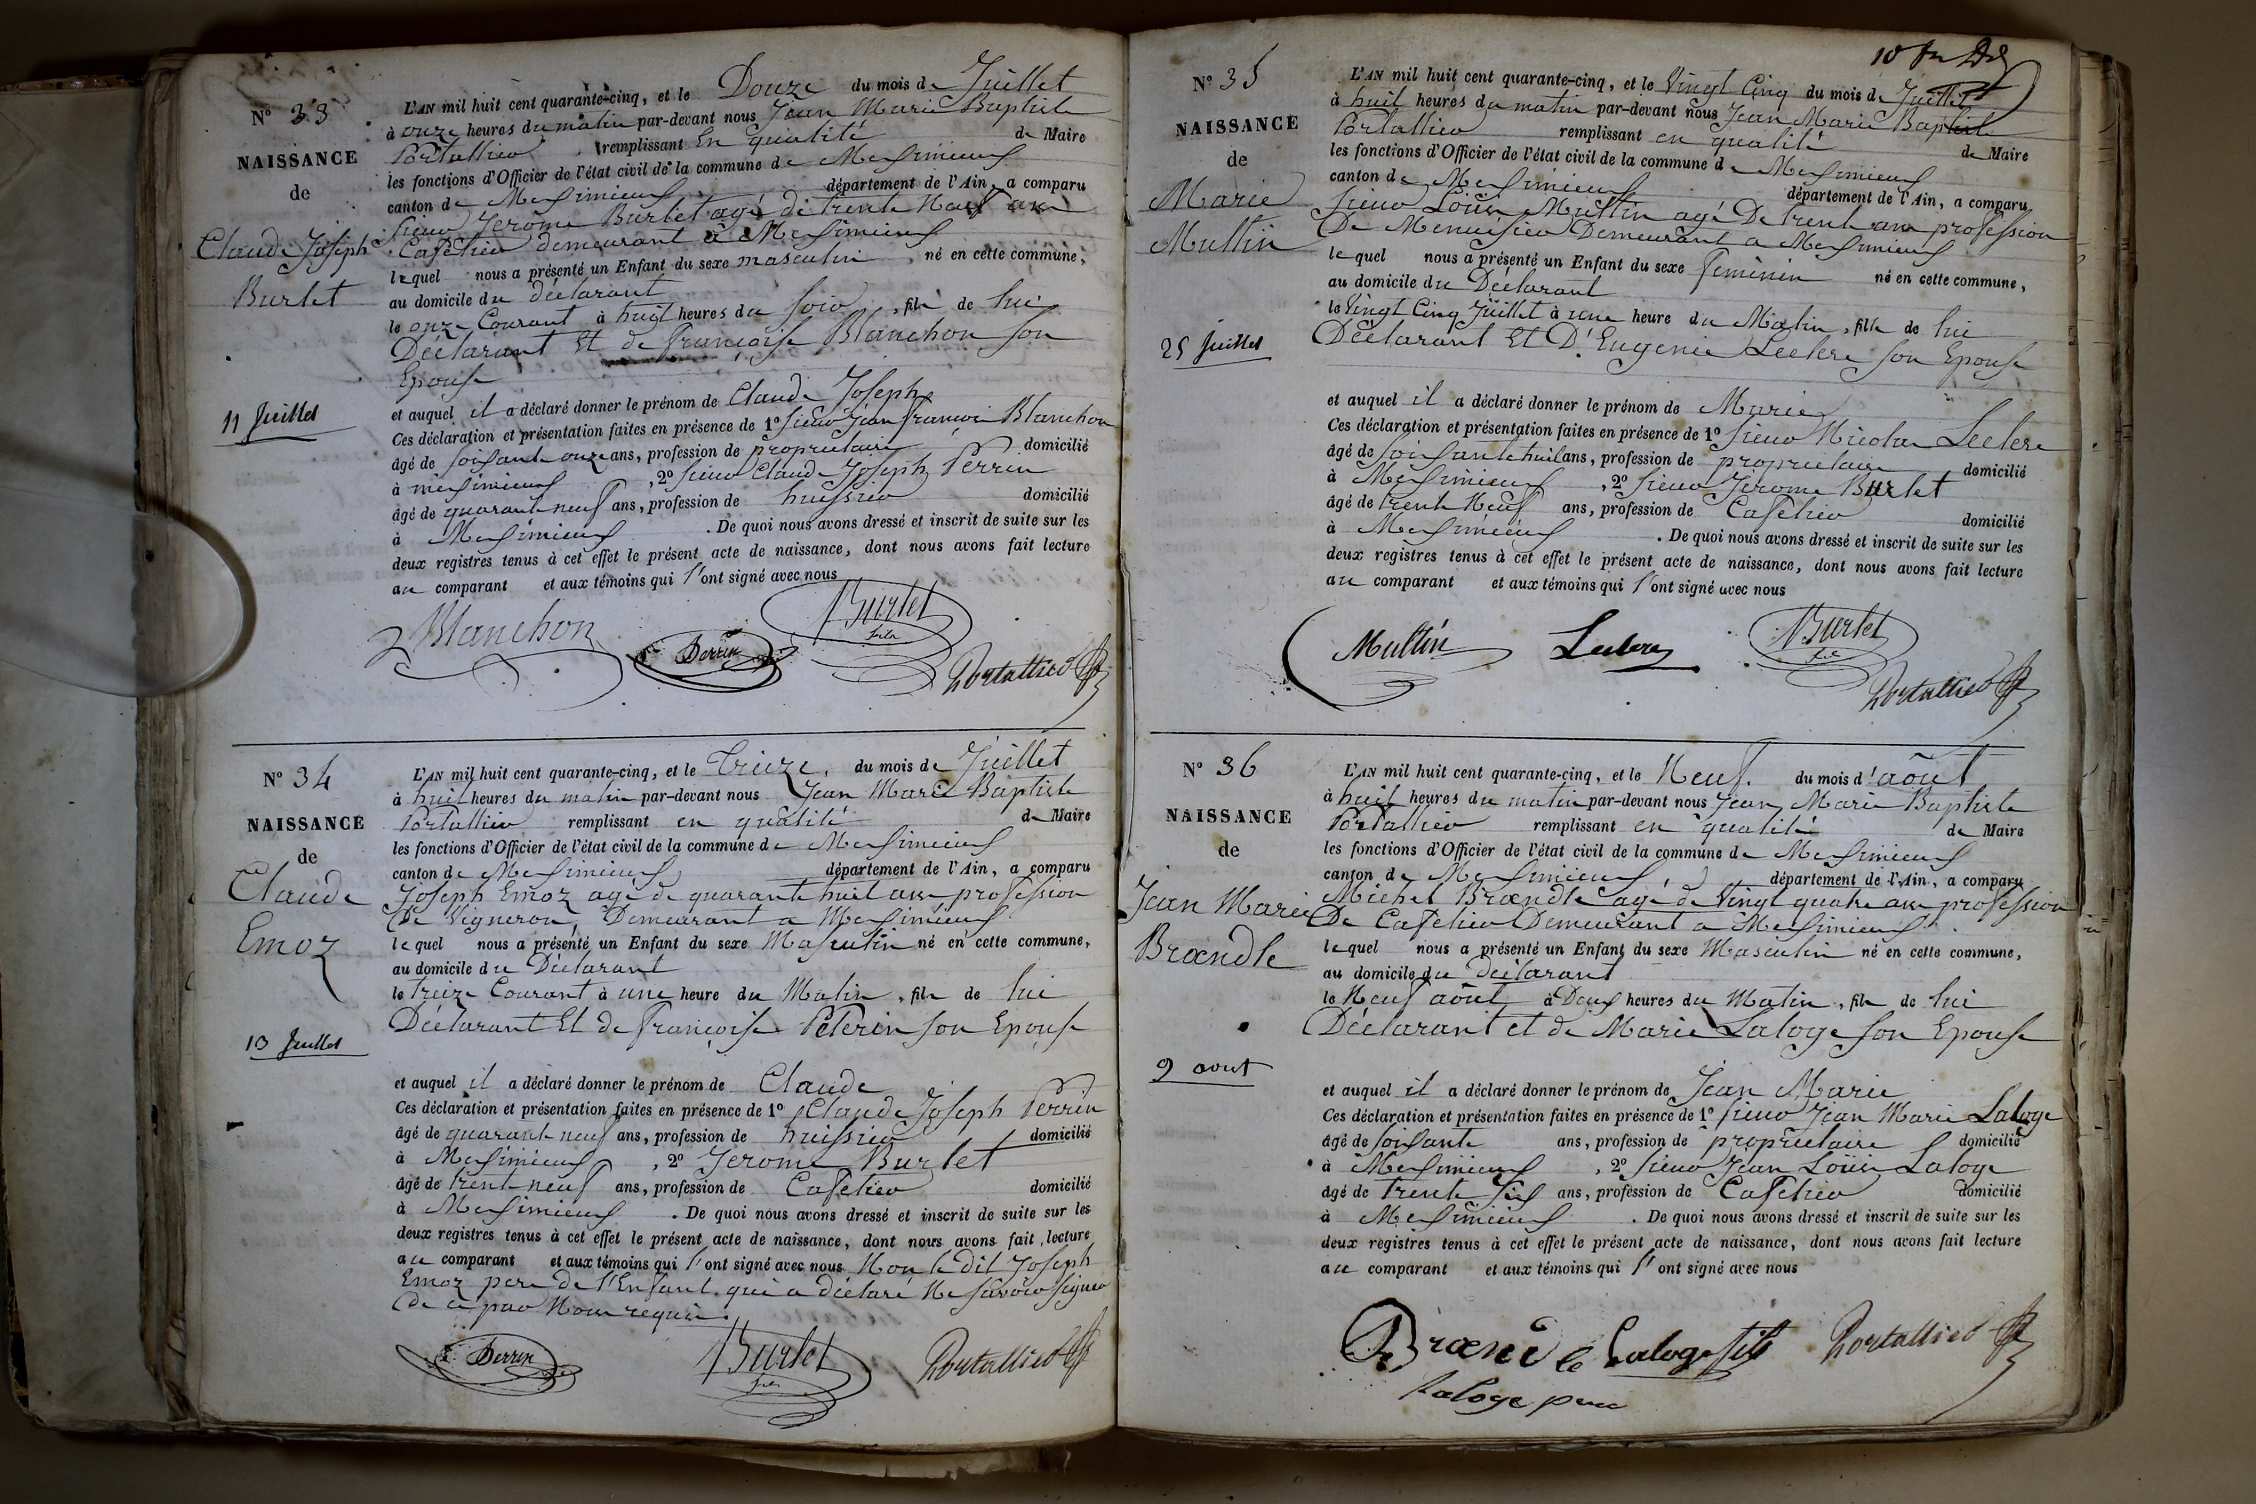 N° 33
NAISSANCE
de
Claude Joseph
Burlet
11 Juillet
L'AN mil huit cent quarante-cinq, et le Douze du mois de Juillet
à onze heures du matin par-devant nous Jean Marie Baptiste
Portallier remplissant en qualité de Maire
les fonctions d'Officier de l'état civil de la commune de Messimieux
canton de Messimieux département de l'Ain, a comparu
sieur Jerome Burlet agé de trente Neuf ans
Cafetier demeurant à Messimieux
lequel nous a présenté un Enfant du sexe masculin né en cette commune,
au domicile du déclarant
le onze Courant à huit heures du soir, fils de lui
Déclarant Et de françoise Blanchon son
Epouse
et auquel il a déclaré donner le prénom de Claude Joseph
Ces déclaration et présentation faites en présence de 1° sieur Jean françois Blanchon
âgé de soisante onze ans, profession de propriétaire domicilié
à messimieux, 2° sieur Claude Joseph Perrin
âgé de quarante neuf ans, profession de huissier domicilié
à Messimieux. De quoi nous avons dressé et inscrit de suite sur les
deux registres tenus à cet effet le présent acte de naissance, dont nous avons fait lecture
au comparant et aux témoins qui l'ont signé avec nous
Blanchon Perrin Burlet fils Portallier
N° 34
NAISSANCE
de
Claude
Emoz
13 Juillet
L'AN mil huit cent quarante-cinq, et le Treize du mois de Juillet
à huit heures du matin par-devant nous Jean Marie Baptiste
Portallier remplissant en qualité de Maire
les fonctions d'Officier de l'état civil de la commune de Messimieux
canton de Messimieux département de l'Ain, a comparu
Joseph Emoz agé de quarante huit ans profession
De Vigneron Demeurant a Messimieux
lequel nous a présenté un Enfant du sexe Masculin né en cette commune,
au domicile du Déclarant
le treize Courant à une heure du Matin, fils de lui
Déclarant Et de françoise Peterin son Epouse
et auquel il a déclaré donner le prénom de Claude
Ces déclaration et présentation faites en présence de 1° Claude Joseph Perrin
âgé de quarante neuf ans, profession de huissier domicilié
à Messimieux, 2° Jerome Burlet
âgé de trente neuf ans, profession de Cafetier domicilié
à Messimieux. De quoi nous avons dressé et inscrit de suite sur les
deux registres tenus à cet effet le présent acte de naissance, dont nous avons fait lecture
au comparant et aux témoins qui l'ont signé avec nous Non le dit Joseph
Emoz pere de l'Enfant qui a déclaré Ne savoir signer
de ce par Nous requis.
Perrin Burlet fils Portallier
N° 35
NAISSANCE
de
Marie
Multin
25 Juillet
L'AN mil huit cent quarante-cinq, et le Vingt Cinq du mois de Juillet
à huit heures du matin par-devant nous Jean Marie Baptiste
Portallier remplissant en qualité de Maire
les fonctions d'Officier de l'état civil de la commune de Messimieux
canton de Messimieux département de l'Ain, a comparu
sieur Louis Multin agé De trente ans profession
De Menuisier Demeurant a Messimieux
lequel nous a présenté un Enfant du sexe feminin né en cette commune,
au domicile du Déclarant
le Vingt Cinq Juillet à une heure du Matin, fille de lui
Déclarant Et D'Eugenie Leclere son Epouse
et auquel il a déclaré donner le prénom de Marie
Ces déclaration et présentation faites en présence de 1° sieur Nicolas Leclere
âgé de soisante huit ans, profession de propriétaire domicilié
à Messimieux, 2° sieur Jerome Burlet
âgé de trente Neuf ans, profession de Cafetier domicilié
à Messimieux. De quoi nous avons dressé et inscrit de suite sur les
deux registres tenus à cet effet le présent acte de naissance, dont nous avons fait lecture
au comparant et aux témoins qui l'ont signé avec nous
Multin Leclere Burlet fils Portallier
N° 36
NAISSANCE
de
Jean Marie
Brœndle
9 aout
L'AN mil huit cent quarante-cinq, et le Neuf du mois d'août
à huit heures du matin par-devant nous Jean Marie Baptiste
Portallier remplissant en qualité de Maire
les fonctions d'Officier de l'état civil de la commune de Messimieux
canton de Messimieux département de l'Ain, a comparu
Michel Brœndle agé de Vingt quatre ans profession
De Cafetier Demeurant a Messimieux
lequel nous a présenté un Enfant du sexe Masculin né en cette commune,
au domicile du déclarant
le Neuf août à Deux heures du Matin, fils de lui
Déclarant et de Marie Laloge son Epouse
et auquel il a déclaré donner le prénom de Jean Marie
Ces déclaration et présentation faites en présence de 1° sieur Jean Marie Laloge
âgé de soisante ans, profession de propriétaire domicilié
à Messimieux, 2° sieur Jean Louis Laloge
âgé de trente six ans, profession de Cafetier domicilié
à Messimieux. De quoi nous avons dressé et inscrit de suite sur les
deux registres tenus à cet effet le présent acte de naissance, dont nous avons fait lecture
au comparant et aux témoins qui l'ont signé avec nous
Brœndle Laloge fils Portallier
Laloge pere